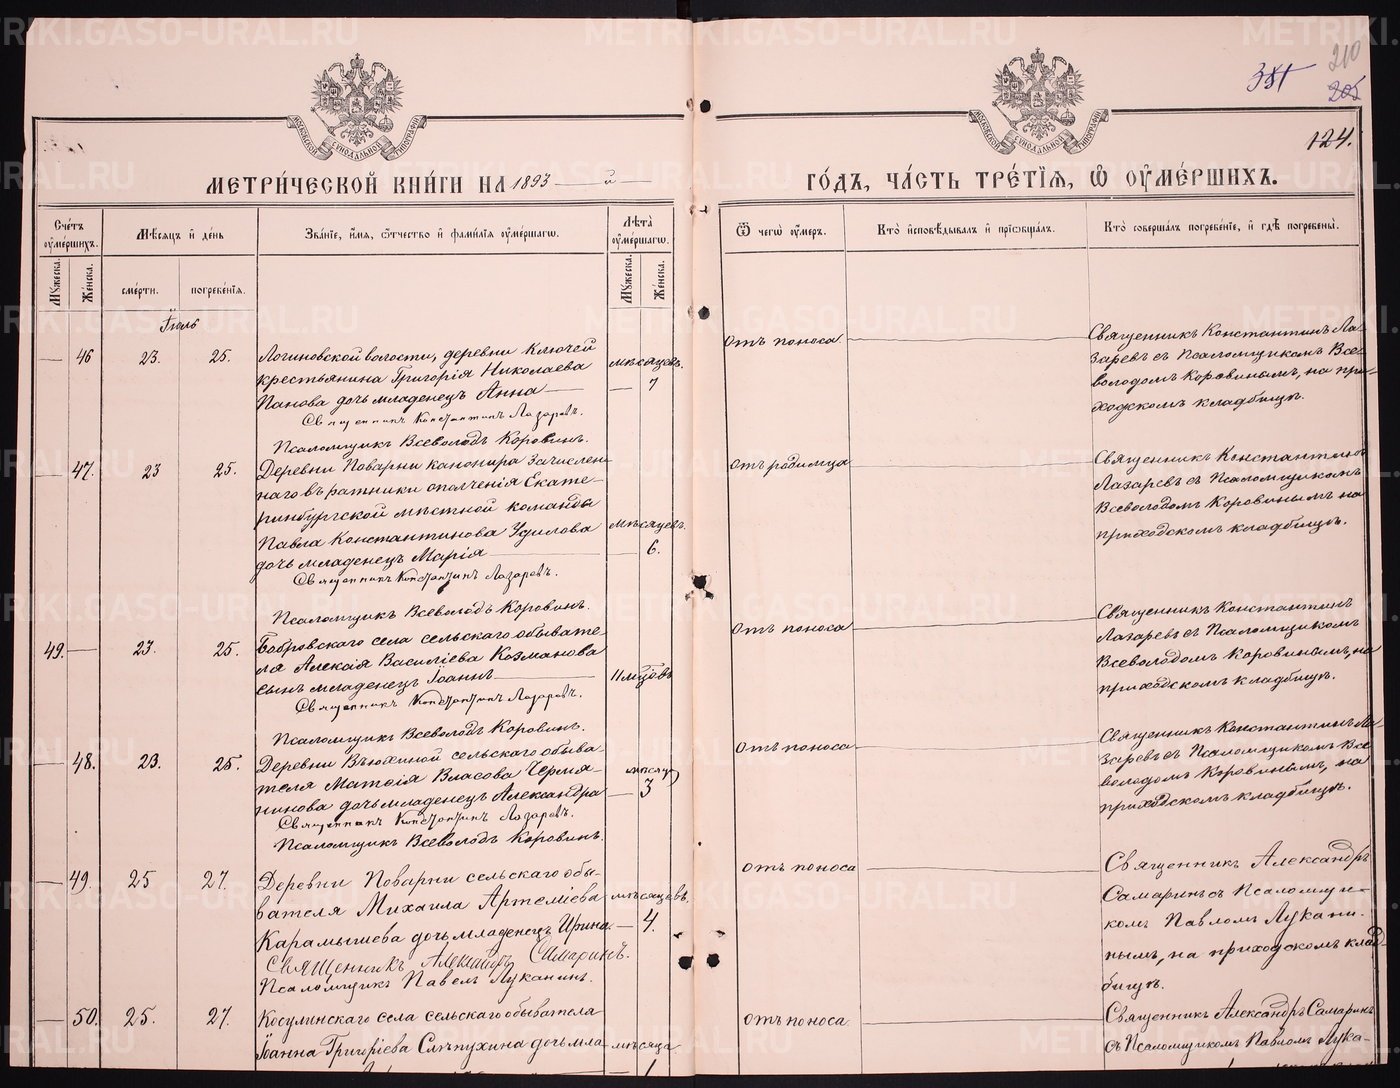 METRIKI.GASO-URAL.RU
381
210
205
124.
МОСКОВСКОЙ СУНОДАЛЬНОЙ ТИПОГРАФІИ
МОСКОВСКОЙ СУНОДАЛЬНОЙ ТИПОГРАФІИ
МЕТРИ́ЧЕСКОЙ КНИ́ГИ НА 1893 й
ГО́ДЪ, ЧА́СТЬ ТРЕ́ТІЯ, Ѿ ОУМЕ́РШИХЪ.
Сче́тъ оуме́ршихъ.
Мѣ́сяцъ и҆ де́нь
Зва́ніе, и҆́мя, ѻ҆́тчество и҆ фами́лія оуме́ршагѡ.
Лѣ́та оуме́ршагѡ.
Мꙋ́жеска.
Же́нска.
сме́рти.
погребе́нія.
Мꙋ́жеска.
Же́нска.
Ѿ чегѡ̀ оу́меръ.
Кто̀ и҆сповѣ́дывалъ и҆ прїѡбща́лъ.
Кто̀ соверша́лъ погребе́ніе, и҆ гдѣ̀ погребены̀.
Іюль
— 46 23 25.
Логиновской волости, деревни Ключей
крестьянина Григорія Николаева
Панова дочь младенецъ Анна
мѣсяцевъ.
— 7
Священникъ Константинъ Лазаревъ.
Псаломщикъ Всеволодъ Коровинъ.
отъ поноса
Священникъ Константинъ Ла-
заревъ съ Псаломщикомъ Все-
володомъ Коровинымъ, на при-
ходскомъ кладбищѣ.
— 47. 23 25.
Деревни Поварни канонира зачислен-
наго въ ратники ополченія Екате-
ринбургской мѣстной команды
Павла Константинова Удилова
дочь младенецъ Марія
мѣсяцевъ
— 6.
Священникъ Константинъ Лазаревъ.
Псаломщикъ Всеволодъ Коровинъ.
отъ родимца
Священникъ Константинъ
Лазаревъ съ Псаломщикомъ
Всеволодомъ Коровинымъ на
приходскомъ кладбищѣ.
49. — 23. 25.
Бобровскаго села сельскаго обывате-
ля Алексія Василіева Козманова
сынъ младенецъ Іоаннъ
11 мѣсѧцовъ
Священникъ Константинъ Лазаревъ.
Псаломщикъ Всеволодъ Коровинъ.
отъ поноса
Священникъ Константинъ
Лазаревъ съ Псаломщикомъ
Всеволодомъ Коровинымъ, на
приходскомъ кладбищѣ.
— 48. 23. 25.
Деревни Вьюхиной сельскаго обыва-
теля Матѳія Власова Чермя-
нинова дочь младенецъ Александра
мѣсяц
— 3
Священникъ Константинъ Лазаревъ.
Псаломщикъ Всеволодъ Коровинъ.
отъ поноса
Священникъ Константинъ Ла-
заревъ съ Псаломщикомъ Все-
володомъ Коровинымъ, на
приходскомъ кладбищѣ.
— 49. 25 27.
Деревни Поварни сельскаго обы-
вателя Михаила Артеміева
Карамышева дочь младенецъ Ирина
мѣсяцевъ.
— 4.
Священникъ Александръ Самаринъ.
Псаломщикъ Павелъ Луканинъ.
отъ поноса
Священникъ Александръ
Самаринъ съ Псаломщи-
комъ Павломъ Лукани-
нымъ, на приходскомъ клад-
бищѣ.
— 50. 25. 27.
Косулинскаго села сельскаго обывателя
Іоанна Григоріева Слѣпухина дочь мла-
мѣсяца
отъ поноса
Священникъ Александръ Самаринъ
съ Псаломщикомъ Павломъ Лука-